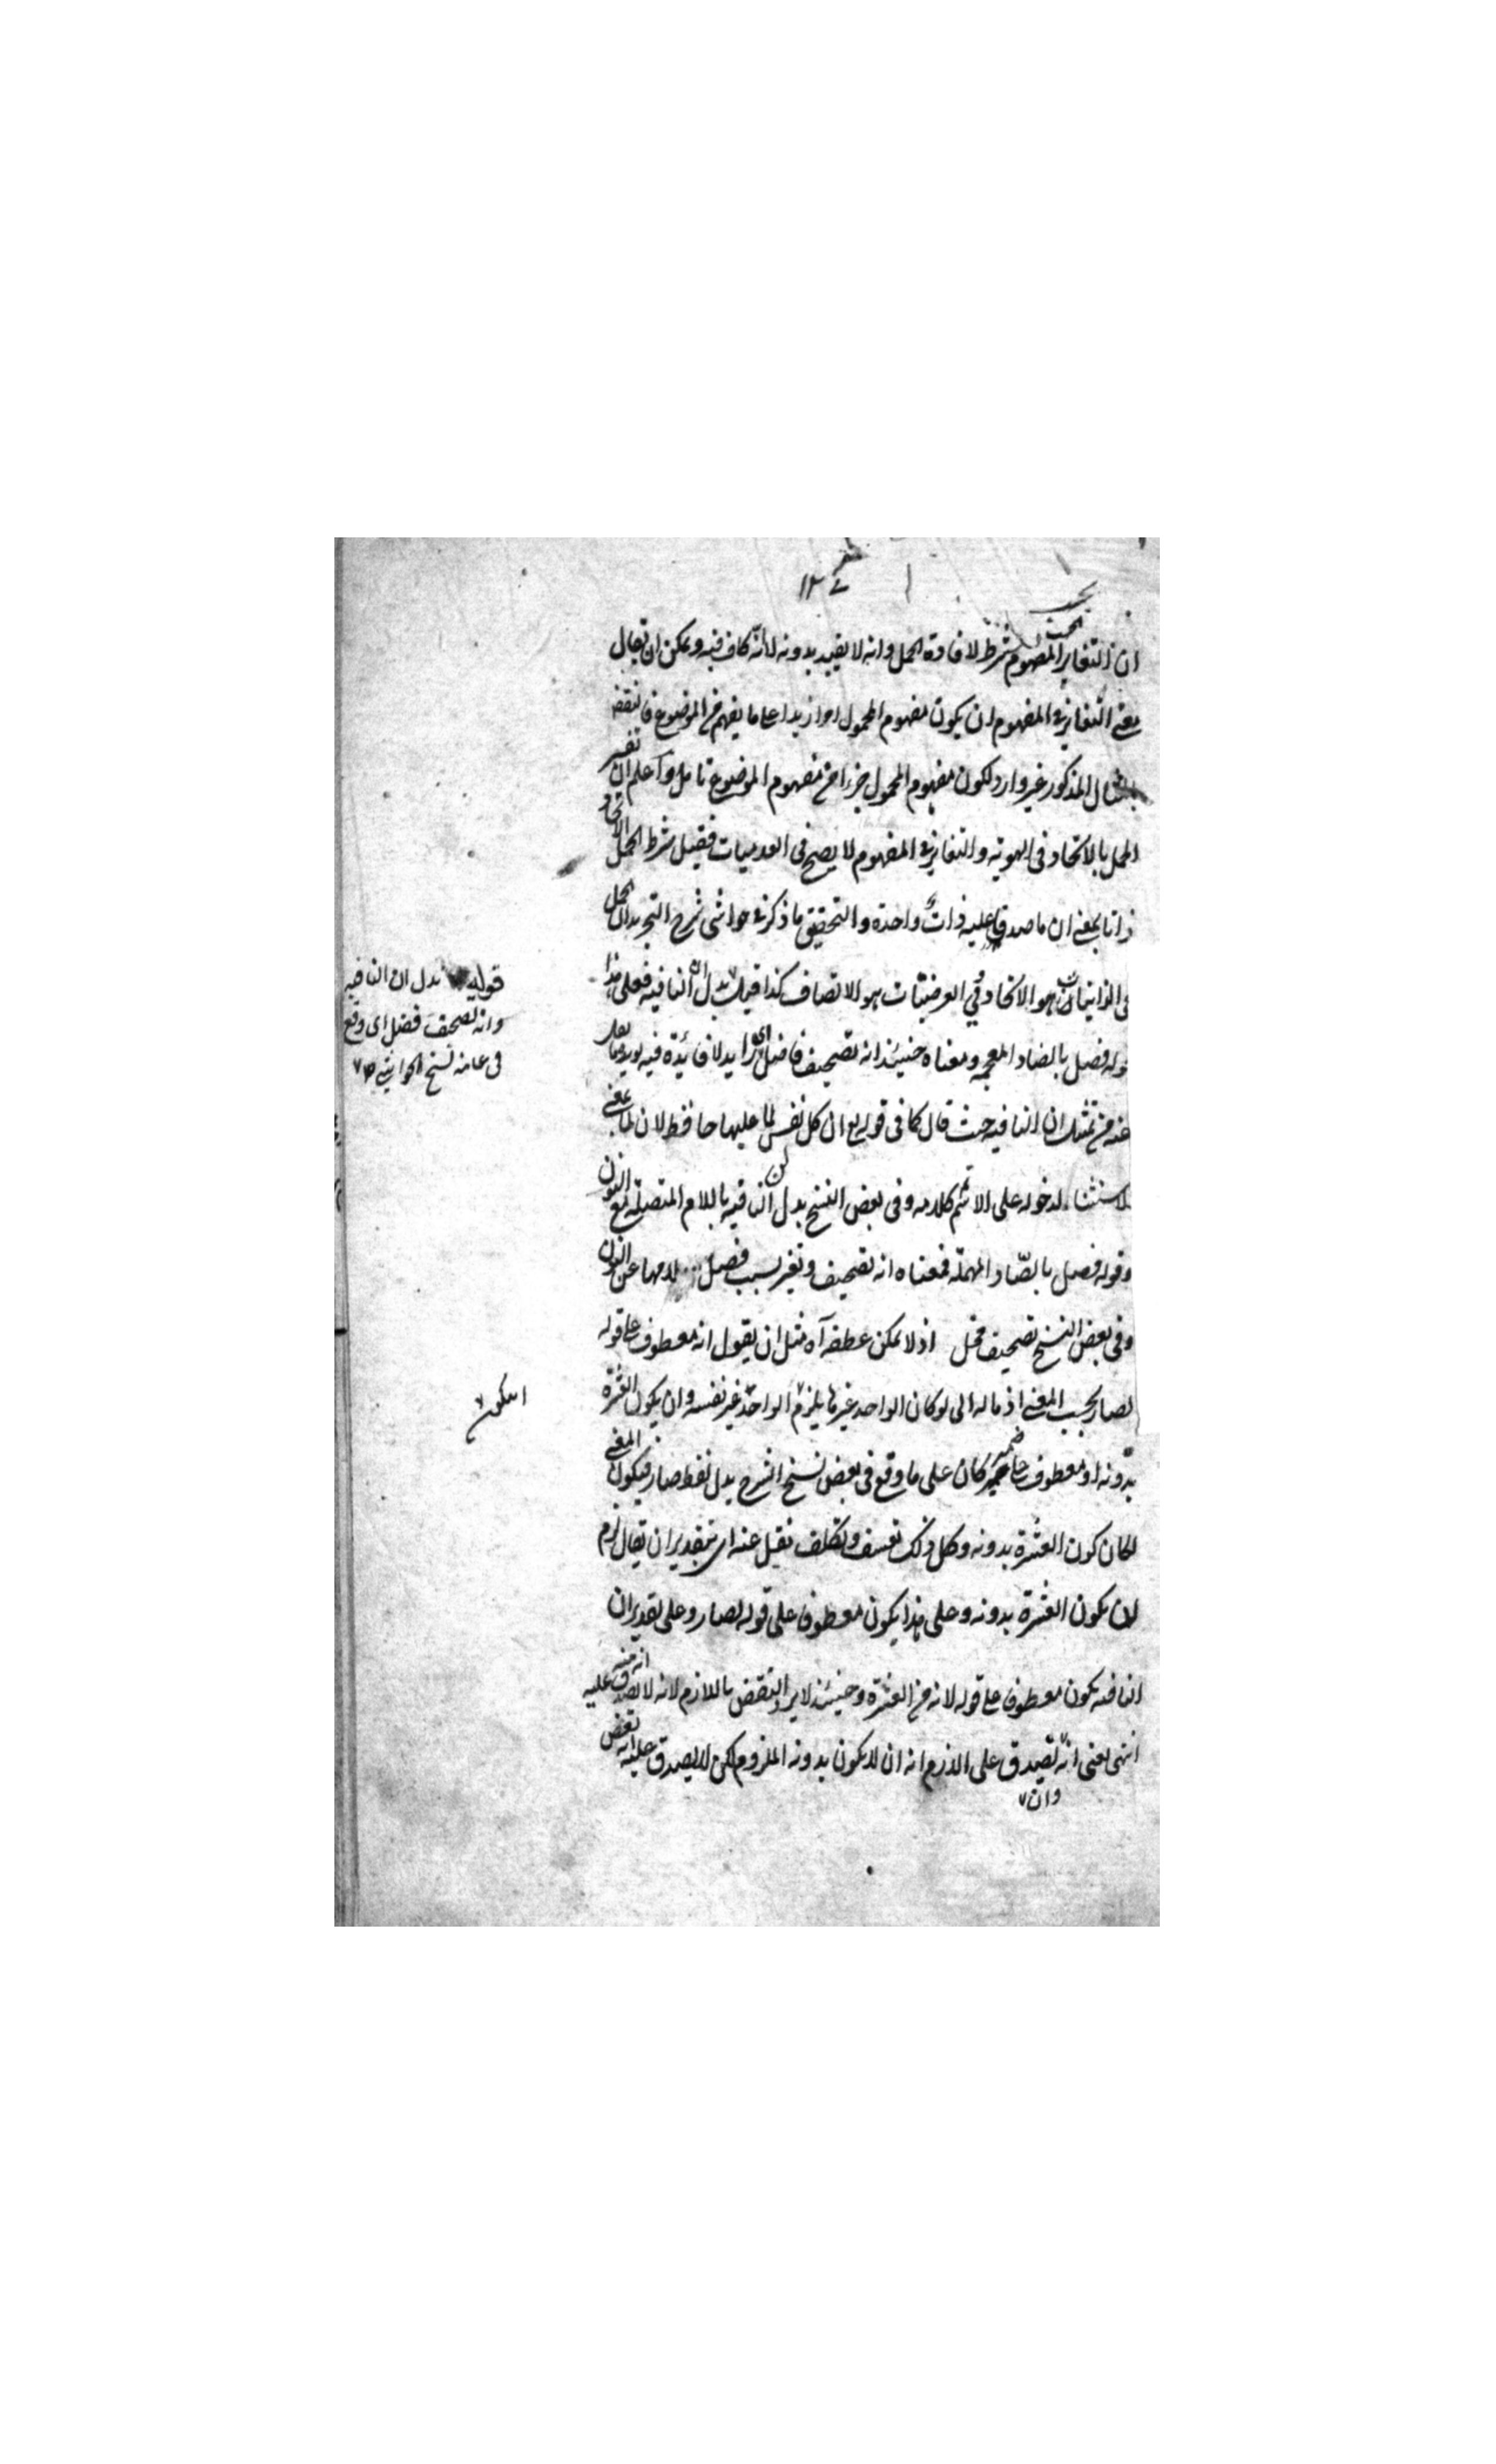 ان التغاير المفهوم شرط لافادة الحمل وانه لا يفيد بدونه لا انه كاف فيه ويمكن ان يقال
معنى التغاير في المفهوم ان يكون مفهوم المحمول امرا زيدا على ما يفهم من الموضوع فالنقض
بالمثال المذكور غير وارد لكون مفهوم المحمول جزءا من مفهوم الموضوع تامل واعلم ان تفسير
الحمل بالاتحاد في الهوية والتغاير في المفهوم لا يصح في العدميات فقيل شرط الحمل الاتحاد
ذاتا بمعنى ان ما صدقا عليه ذات واحدة والتحقيق ما ذكر في حواشي شرح التجريد ان الحمل
في الذاتيات هو الاتحاد وفي العرضيات هو الاتصاف كذا قيل بدل ان النافية فعلى هذا
قوله فضل بالضاد المعجمة ومعناه حينئذ انه تصحيف فاضل اي زايد لا فائدة فيه
عنه من تمثيل ان النافية حيث قال كما في قوله تع ان كل نفس لما عليها حافظ لان لما بمعنى
الاستثناء لدخوله على الاثم كلامه وفي بعض النسخ بدل لن النافية باللام المتصلة مع النون
وقوله فصل بالصاد المهملة فمعناه انه تصحيف وتغير بسبب فصل لامها عن النون
وفي بعض النسخ تصحيف مخل اذ لا يمكن عطفه آه مثل ان يقول انه معطوف على قوله
لصار بحسب المعنى اذ ماله الى لو كان الواحد غيرها يلزم الواحد غير نفسه وان يكون العشرة
بدونه او معطوف على ضمير كان على ما وقع في بعض نسخ الشرح بدل لفظ صار فيكون المعنى
لكان كون العشرة بدونه وكل ذلك تعسف وتكلف نقل عنه اي بتقدير ان يقال لزم
لان يكون العشرة بدونه وعلى هذا يكون معطوف على قوله لصار وعلى تقدير ان
النافية يكون معطوف على قوله لانه من العشرة وحينئذ لا يرد النقض باللازم لانه لا يصدق عليه انه منه
انتهى يعني انه يصدق على اللازم انه ان لا يكون بدونه الملزوم لكن لا يصدق عليه انه بعض
وان
قوله بدل ان النافية
وانه تصحيف فضل اي وقع
في عامة نسخ الحواشي
ان يكون